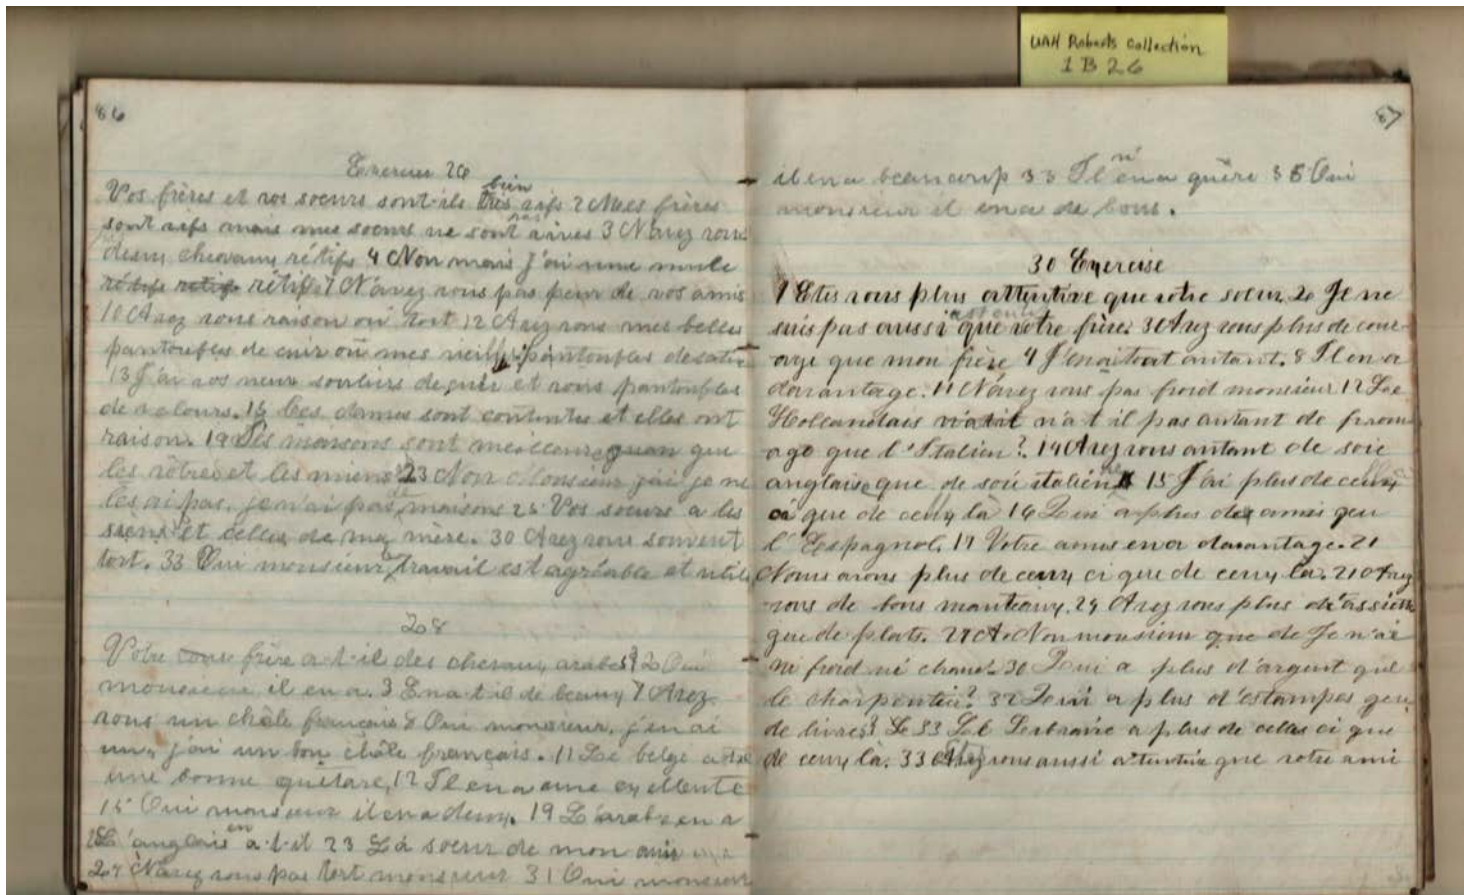 UAH Roberts Collection
1B26
86
Exercise 26
bien
Vos frères et vos soeurs sont-ils très vifs 2 Mes frères
pas
sont vifs mais mes soeurs ne sont vives 3 N'avez vous
deux chevaux rétifs 4 Non mais j'ai une mule
rétifs 7 N'avez vous pas peur de vos amis
10 Avez vous raison ou tort 12 Avez vous mes belles
pantoufles de cuir où mes vieilles pantoufles de satin
13 J'ai vos neuf souliers de et vous pantoufles
de velours. 15 Ces dames sont contentes et elles ont
raison. 19 Les maisons sont meilleures que
les vôtres et les miens 23 Non Monsieur j'ai je ne
les ai pas, je n'ai pas de maisons 25 Vos soeurs a les
siens et celles de ma mère. 30 Avez vous souvent
tort. 33 Oui monsieur travail est agréable et utile
28
Votre frère a-t-il des chevaux arabes? 2 Oui
monsieur il en a. 3 En a t il de beaux 7 Avez
vous un châle français 8 Oui monsieur, j'en ai
un, j'ai un bon châle français. 11 Le belge a-t-il
une bonne guitare, 12 Il en a une excellente
15 Oui monsieur il en a deux. 19 L'arabe en a
en
L'anglais a-t-il 23 La soeur de mon ami
27 N'avez vous pas tort monsieur 31 Oui monsieur
87
ni
il en a beaucoup 33 Il en a guère 35 Oui
monsieur il en a de bons.
30 Exercise
1 Etes vous plus attentive que votre soeur. 2 Je ne
suis pas aussi que votre frère. 3 Avez vous plus de cour-
age que mon frère 4 J'en ai tout autant. 8 Il en a
davantage. 11 N'avez vous pas froid monsieur 12 Le
Hollandais n'a t il pas autant de from
age que l'Italien? 14 Avez vous autant de soie
anglaise que de soie italienne 15 J'ai plus de ceux
ci que de ceux là 16 Qui a plus des amis que
l'Espagnol. 17 Votre amis en a davantage. 21
Nous avons plus de ceux ci que de ceux là. 21 Avez
vous de bons manteaux. 24 Avez vous plus d'assiette
que de plats. 27 Non monsieur que de Je n'ai
ni froid ni chaud. 30 Qui a plus d'argent que
le charpentier? 32 Qui a plus d'estampes que
de livres? Le 33 Le Librairie a plus de celles ci que
de ceux là. 33 Etes vous aussi attentive que votre ami